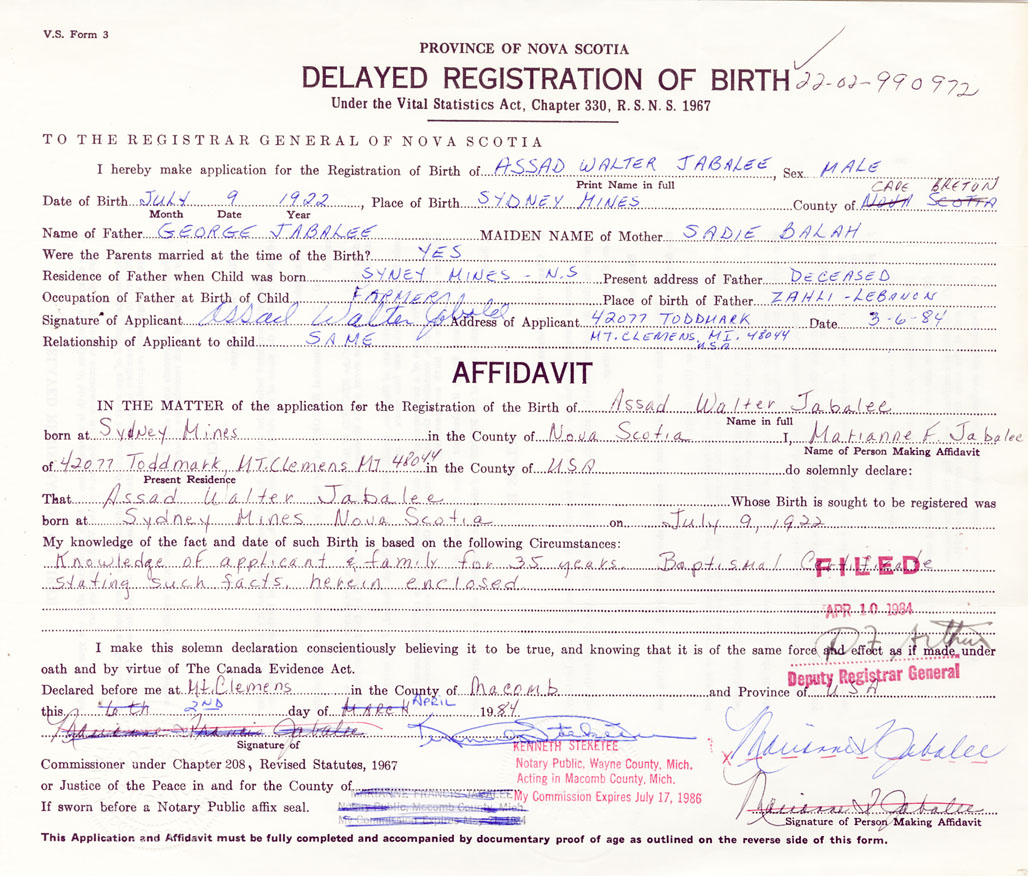 V.S. Form 3
PROVINCE OF NOVA SCOTIA
DELAYED REGISTRATION OF BIRTH 22-02-990972
Under the Vital Statistics Act, Chapter 330, R.S.N.S. 1967
TO THE REGISTRAR GENERAL OF NOVA SCOTIA
I hereby make application for the Registration of Birth of ASSAD WALTER JABALEE, Sex MALE
Print Name in full
CAPE BRETON
Date of Birth JULY 9 1922, Place of Birth SYDNEY MINES County of NOVA SCOTIA
Month Date Year
Name of Father GEORGE JABALEE MAIDEN NAME of Mother SADIE BALAH
Were the Parents married at the time of the Birth? YES
Residence of Father when Child was born SYNEY MINES - N.S Present address of Father DECEASED
Occupation of Father at Birth of Child FARMER Place of birth of Father ZAHLI - LEBANON
Signature of Applicant Assad Walter Jabalee Address of Applicant 42077 TODDMARK Date 3-6-84
Relationship of Applicant to child SAME MT. CLEMENS, MI. 48044
U.S.A
AFFIDAVIT
IN THE MATTER of the application for the Registration of the Birth of Assad Walter Jabalee
Name in full
born at Sydney Mines in the County of Nova Scotia I, Marianne F. Jabalee
Name of Person Making Affidavit
of 42077 Toddmark, MT. Clemens MI 48044 in the County of USA do solemnly declare:
Present Residence
That Assad Walter Jabalee Whose Birth is sought to be registered was
born at Sydney Mines Nova Scotia on July 9, 1922
My knowledge of the fact and date of such Birth is based on the following Circumstances:
Knowledge of applicant & family for 35 years. Baptismal Certificate
FILED
stating such facts herein enclosed
APR 10 1984
D F Arthur
I make this solemn declaration conscientiously believing it to be true, and knowing that it is of the same force and effect as if made under
oath and by virtue of The Canada Evidence Act.
Deputy Registrar General
Declared before me at Mt. Clemens in the County of Macomb and Province of USA
this 6th 2ND day of MARCH APRIL 1984
Signature of
KENNETH STEKETEE
Marianne F Jabalee
Commissioner under Chapter 208, Revised Statutes, 1967
Notary Public, Wayne County, Mich.
X
or Justice of the Peace in and for the County of
Acting in Macomb County, Mich.
If sworn before a Notary Public affix seal.
My Commission Expires July 17, 1986
Notary Public, Macomb County, Mich
Marianne F Jabalee
Signature of Person Making Affidavit
This Application and Affidavit must be fully completed and accompanied by documentary proof of age as outlined on the reverse side of this form.